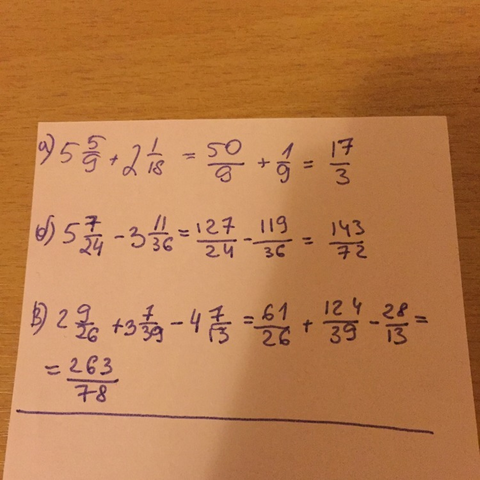 а) 5 5/9 + 2 1/18 = 50/9 + 1/9 = 17/3
б) 5 7/24 - 3 11/36 = 127/24 - 119/36 = 143/72
в) 2 9/26 + 3 7/39 - 4 7/13 = 61/26 + 124/39 - 28/13 =
= 263/78